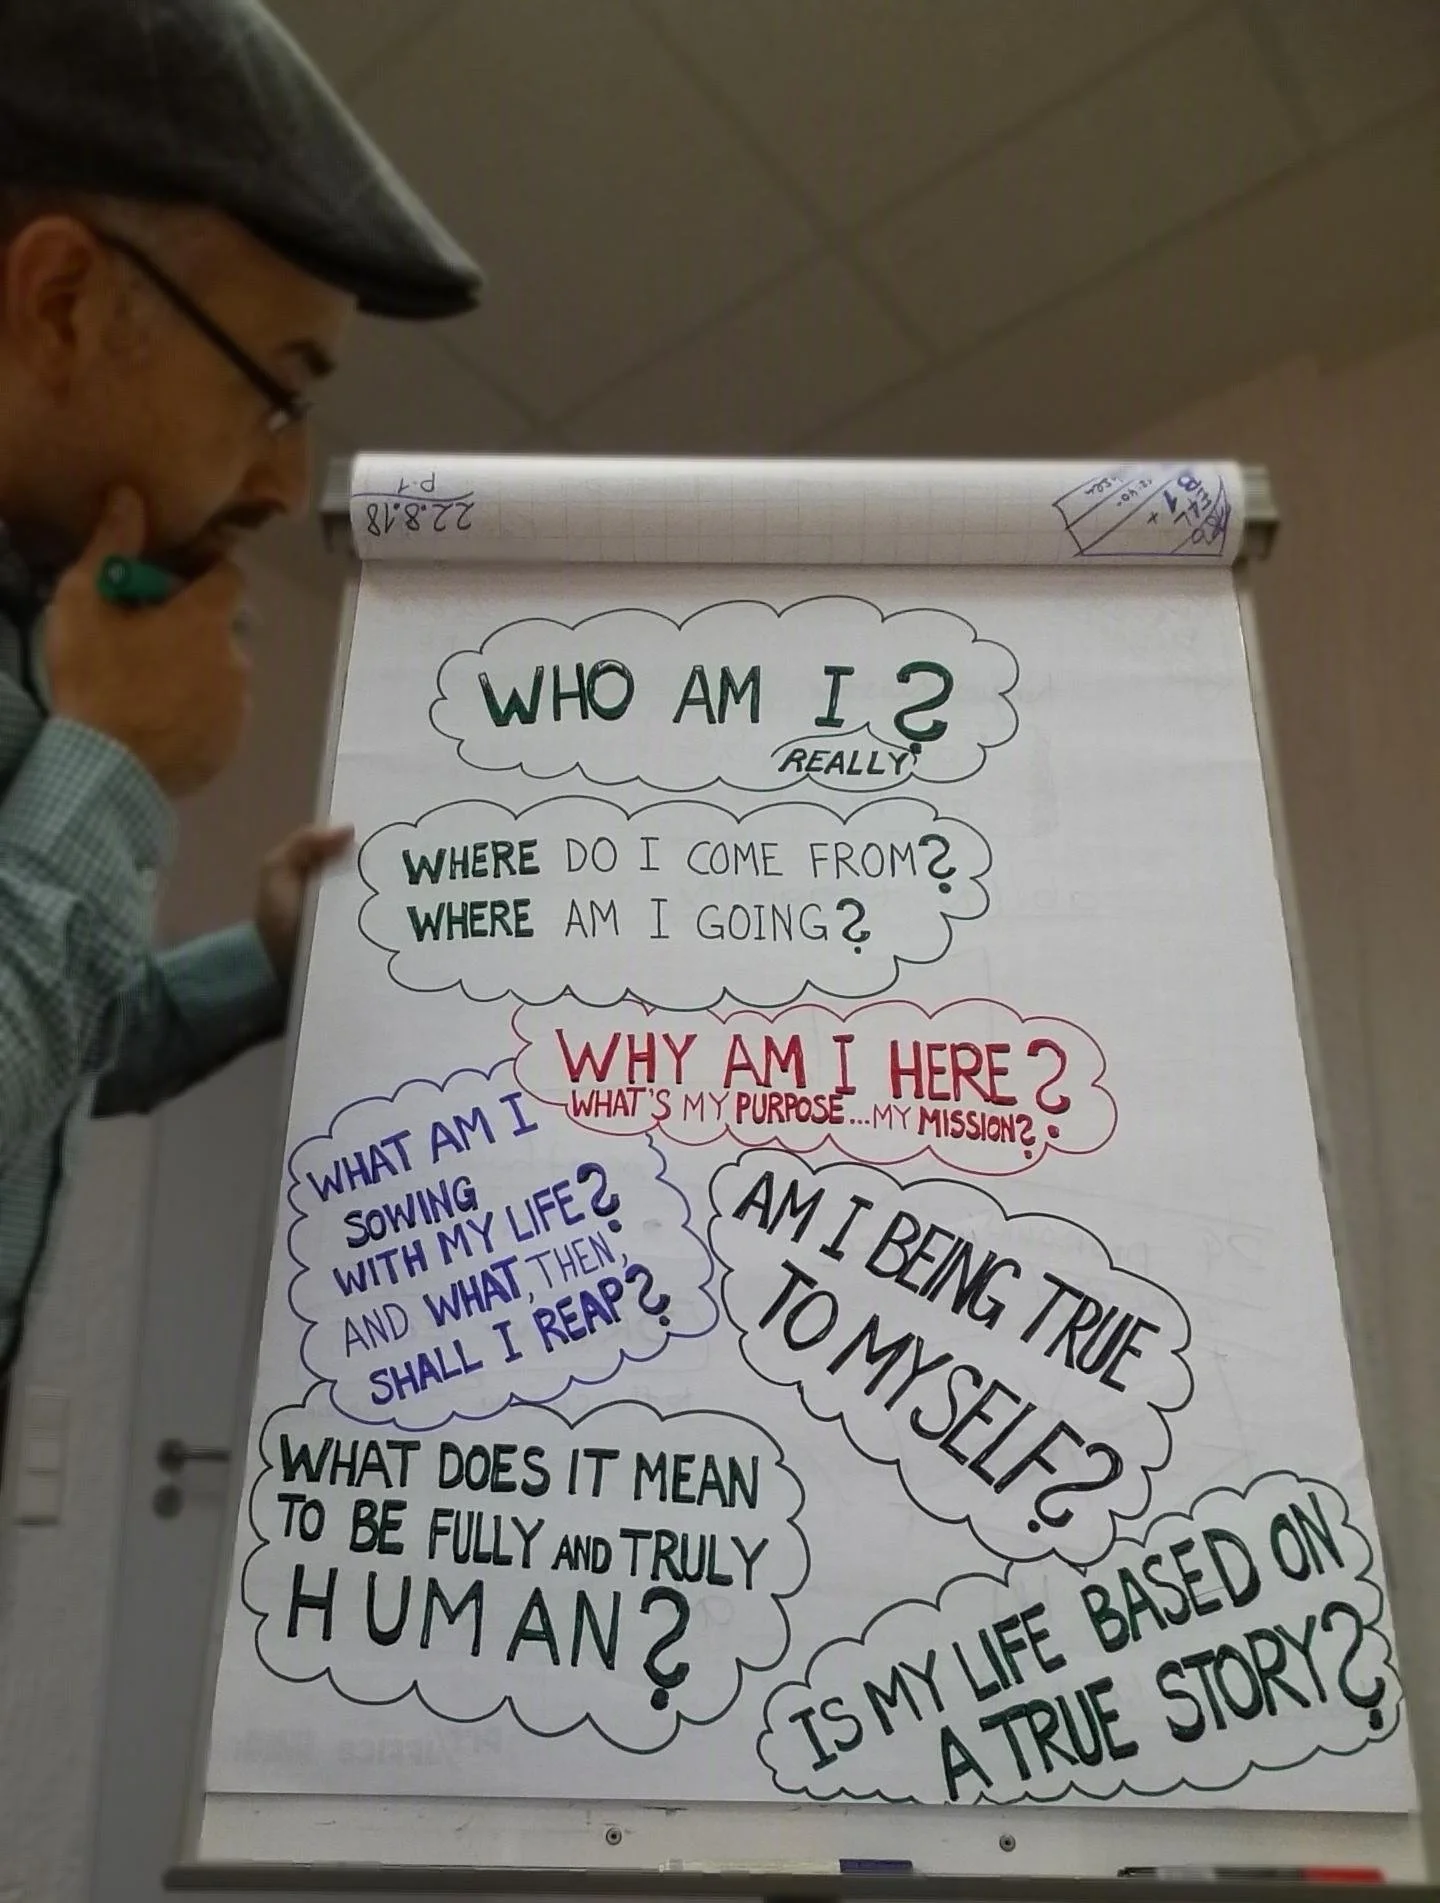 22.8.18
P.1
B1
WHO AM I?
REALLY
WHERE DO I COME FROM?
WHERE AM I GOING?
WHY AM I HERE?
WHAT'S MY PURPOSE...MY MISSION?
WHAT AM I
SOWING
WITH MY LIFE?
AND WHAT, THEN,
SHALL I REAP?
AM I BEING TRUE
TO MYSELF?
WHAT DOES IT MEAN
TO BE FULLY AND TRULY
HUMAN?
IS MY LIFE BASED ON
A TRUE STORY?